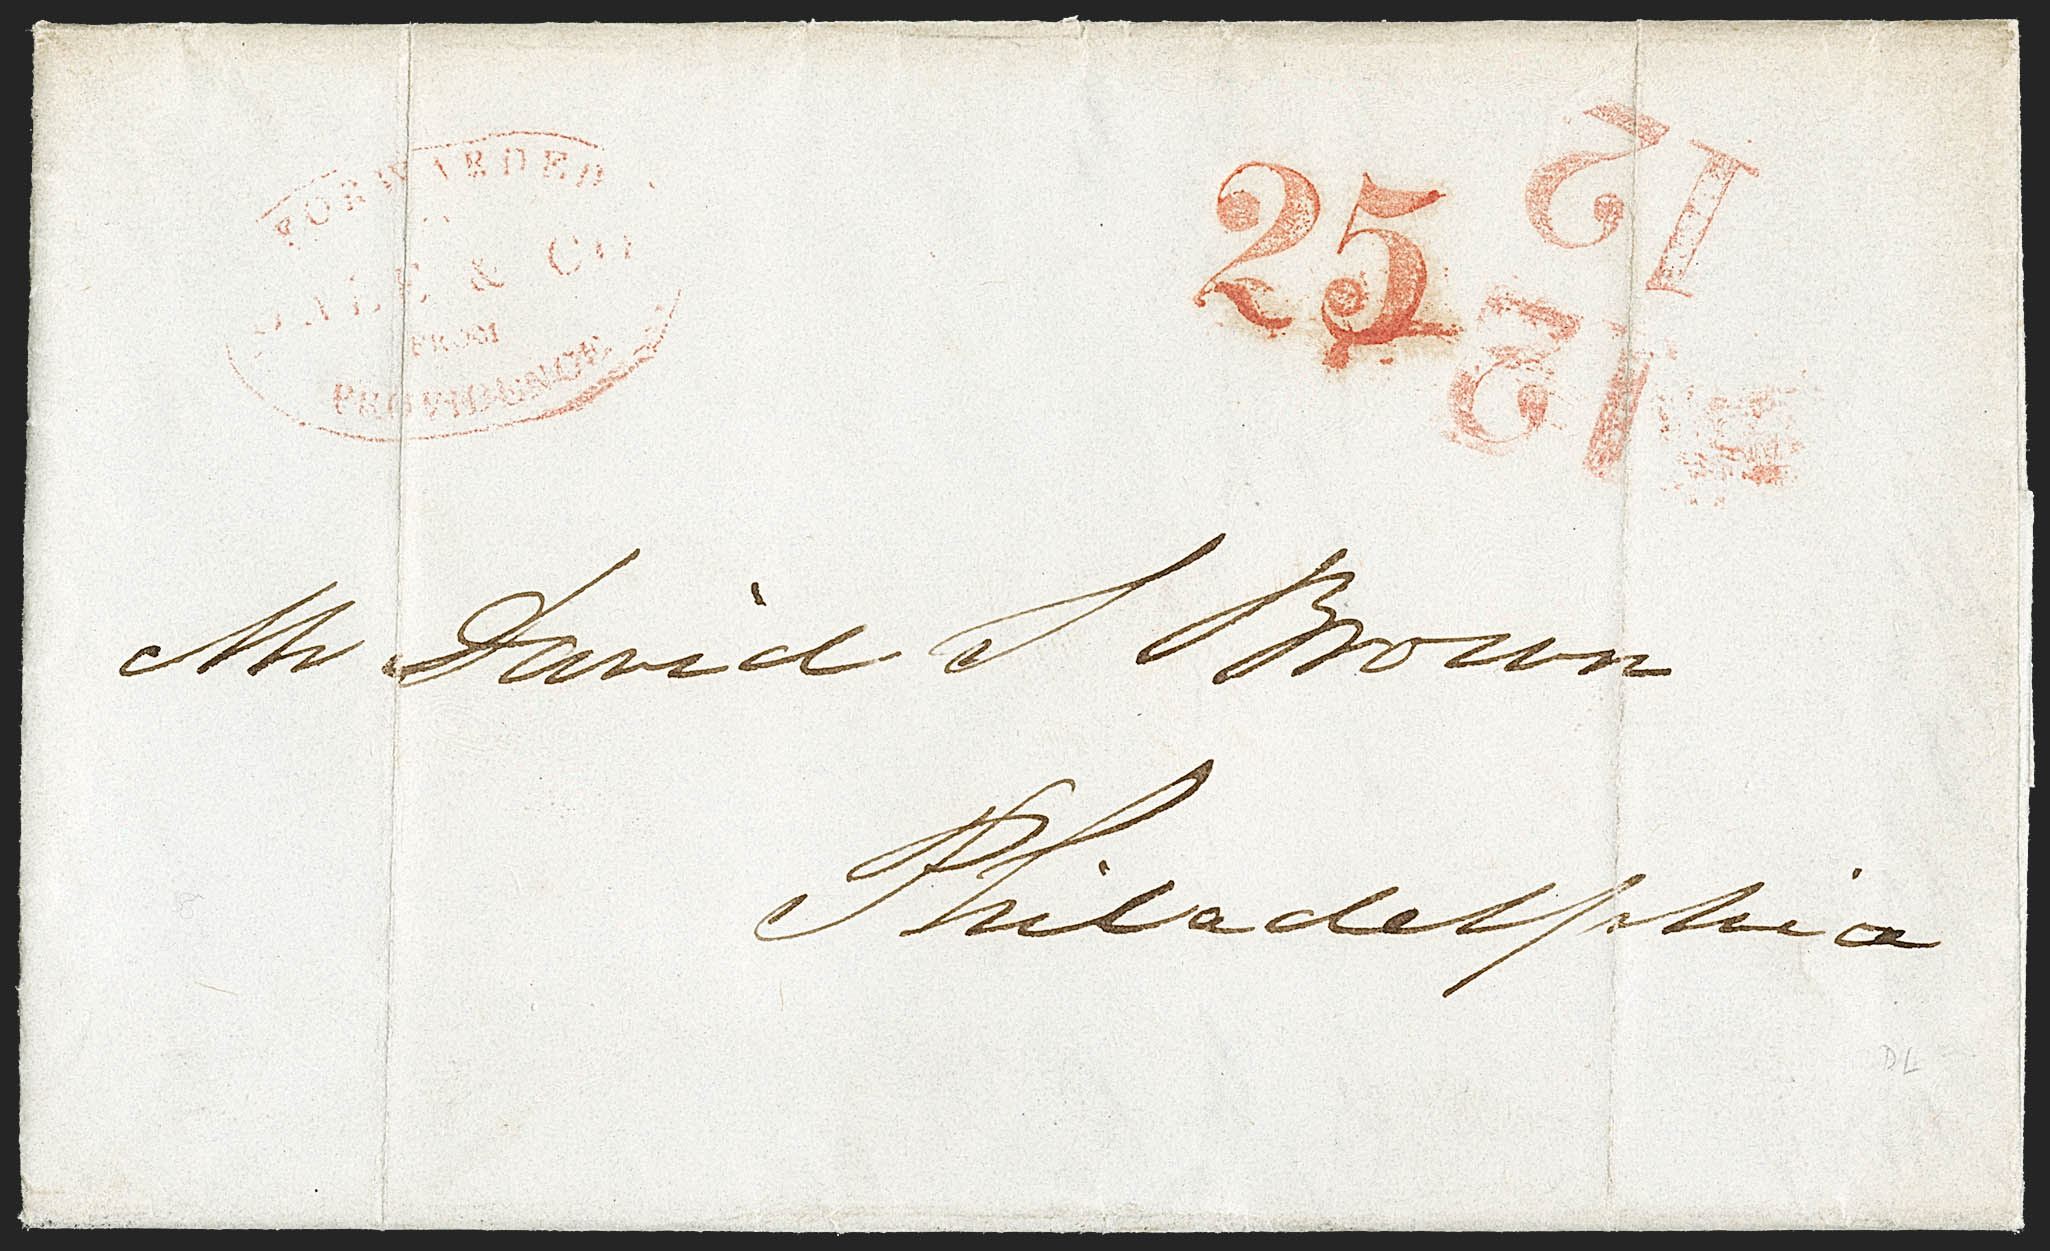 FORWARDED
HALE & CO
FROM
PROVIDENCE
25
12
12
Mr David S Brown
Philadelphia
DL